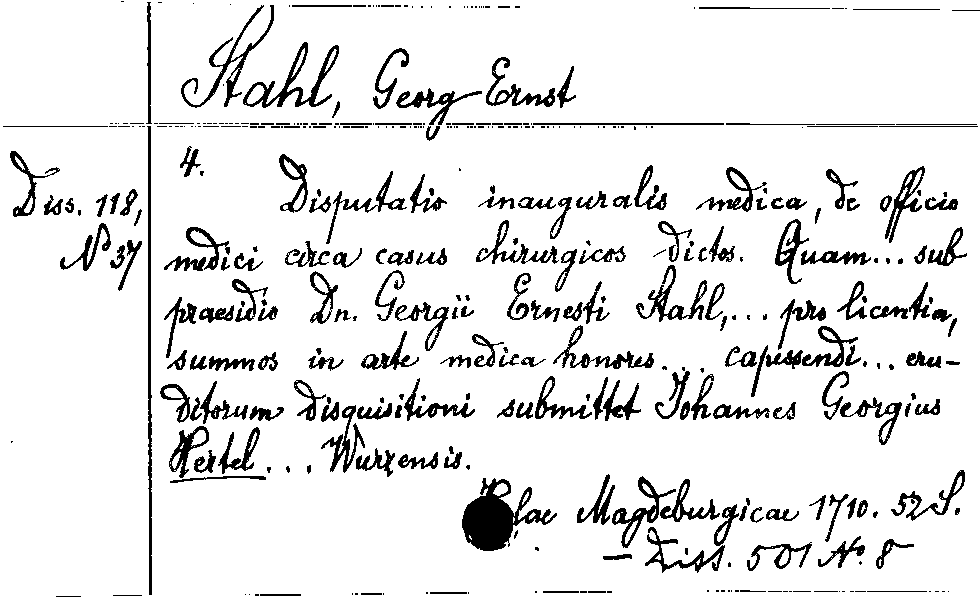 Stahl, Georg Ernst
Diss. 118,
No 37
4.
Disputatio inauguralis medica, de officio
medici circa casus chirurgicos dictos. Quam... sub
praesidio Dn. Georgii Ernesti Stahl,... pro licentia,
summos in arte medica honores... capessendi... eru-
ditorum disquisitioni submittet Johannes Georgius
Hertel... Wurzensis.
Magdeburgicae 1710. 52 S.
— Diss. 501 No. 8